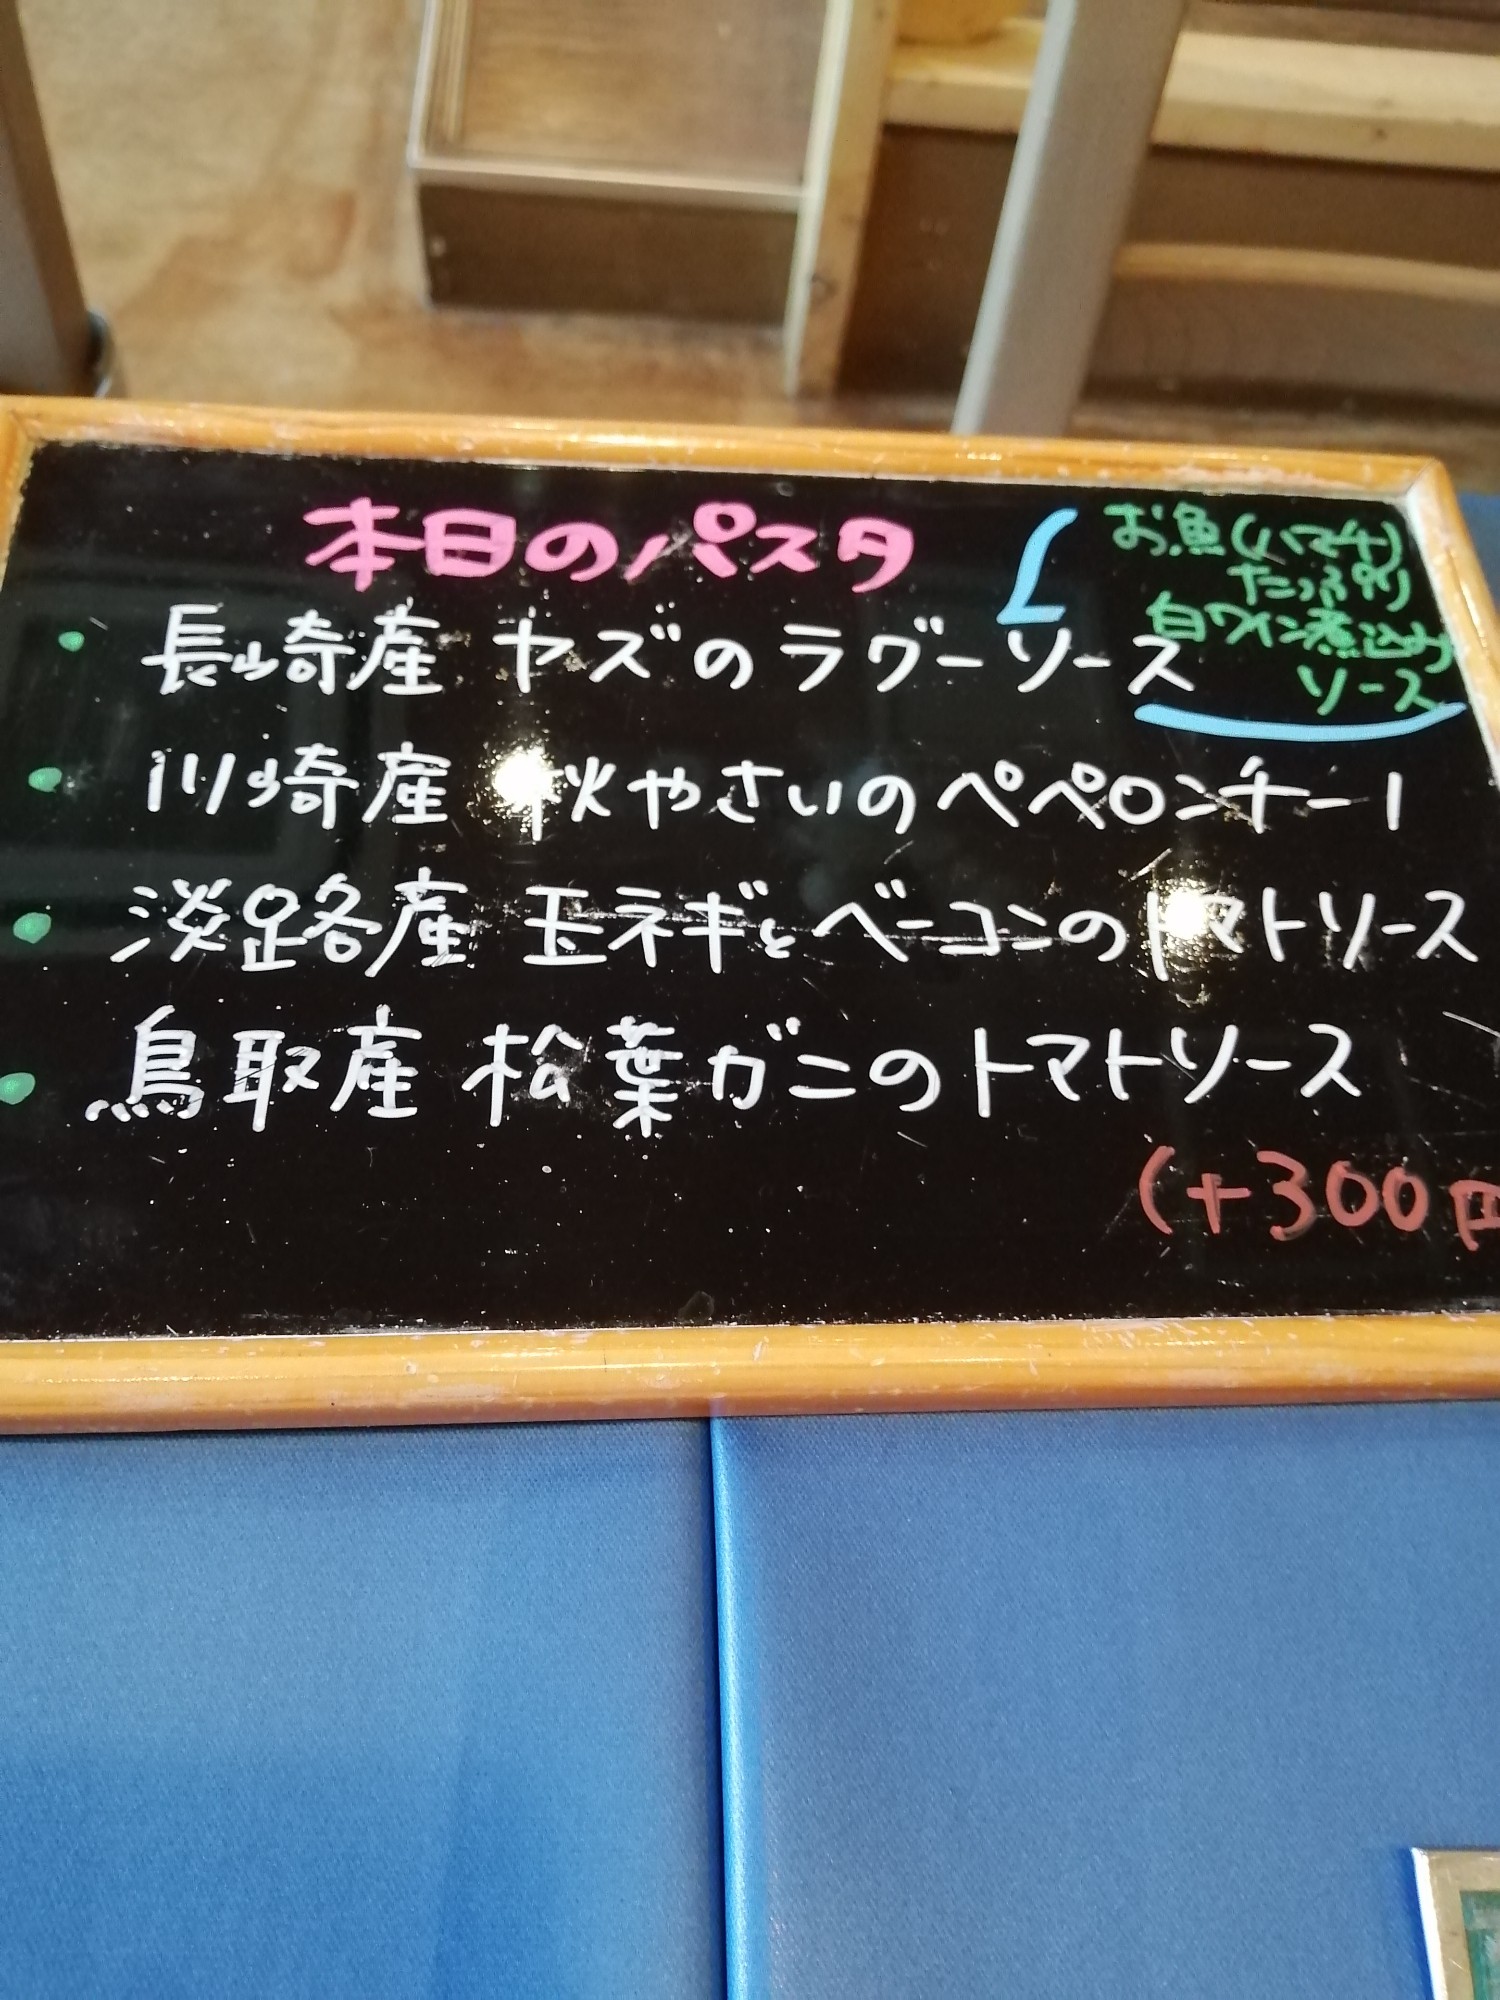 本日のパスタ
お魚(ハマチ)
たっぷり
白ワイン煮込み
ソース
・長崎産 ヤズのラグーソース
・川崎産 秋やさいのペペロンチーノ
・淡路産 玉ネギとベーコンのトマトソース
・鳥取産 松葉ガニのトマトソース
(+300円